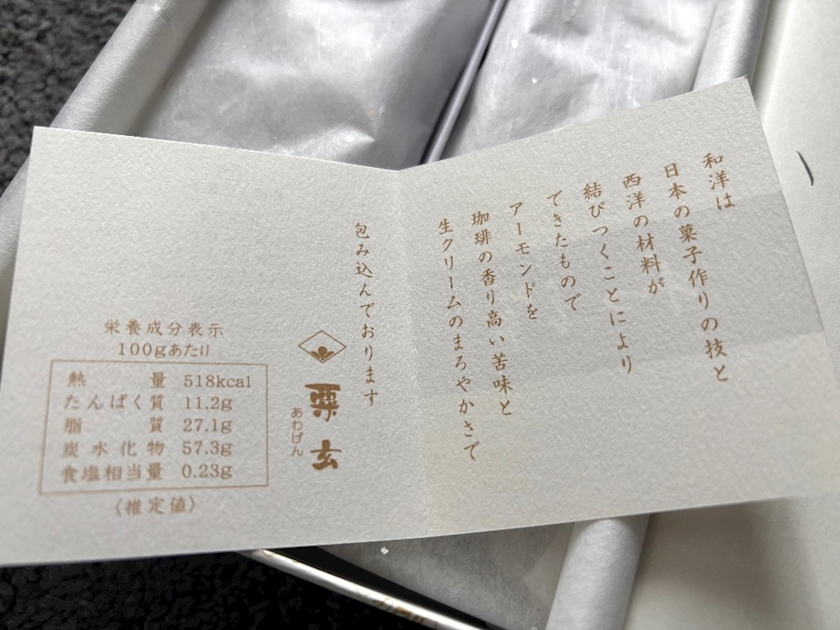 和洋は
日本の菓子作りの技と
西洋の材料が
結びつくことにより
できたもので
アーモンドを
珈琲の香り高い苦味と
生クリームのまろやかさで
包み込んでおります
粟玄
あわげん
栄養成分表示
100gあたり
熱量 518kcal
たんぱく質 11.2g
脂質 27.1g
炭水化物 57.3g
食塩相当量 0.23g
〈推定値〉